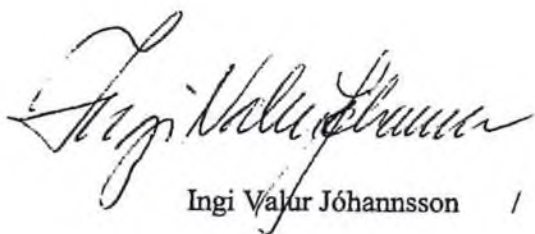 Ingi Valur Jóhannsson
Ingi Valur Jóhannsson